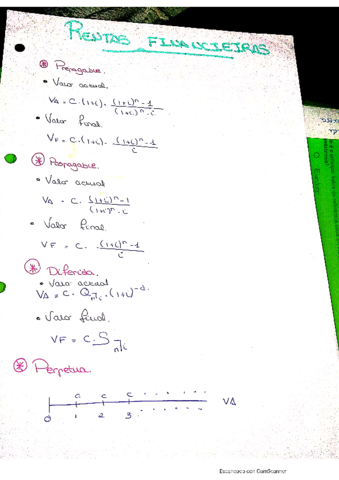 RENTAS FINANCIEIRAS
* Prepagable.
• Valor actual.
VA = C·(1+i)· (1+i)^n - 1 / (1+i)^n · i
• Valor final.
VF = C·(1+i)· (1+i)^n - 1 / i
* Pospagable.
• Valor actual
VA = C· (1+i)^n - 1 / (1+i)^n · i
• Valor final.
VF = C· (1+i)^n - 1 / i
* Diferida.
• Valor actual
VA = C· a n⌉i · (1+i)^-d.
• Valor final.
VF = C· S n⌉i
* Perpetua.
c c c . . . . . VA
0 1 2 3 . . . . .
Escaneado con CamScanner